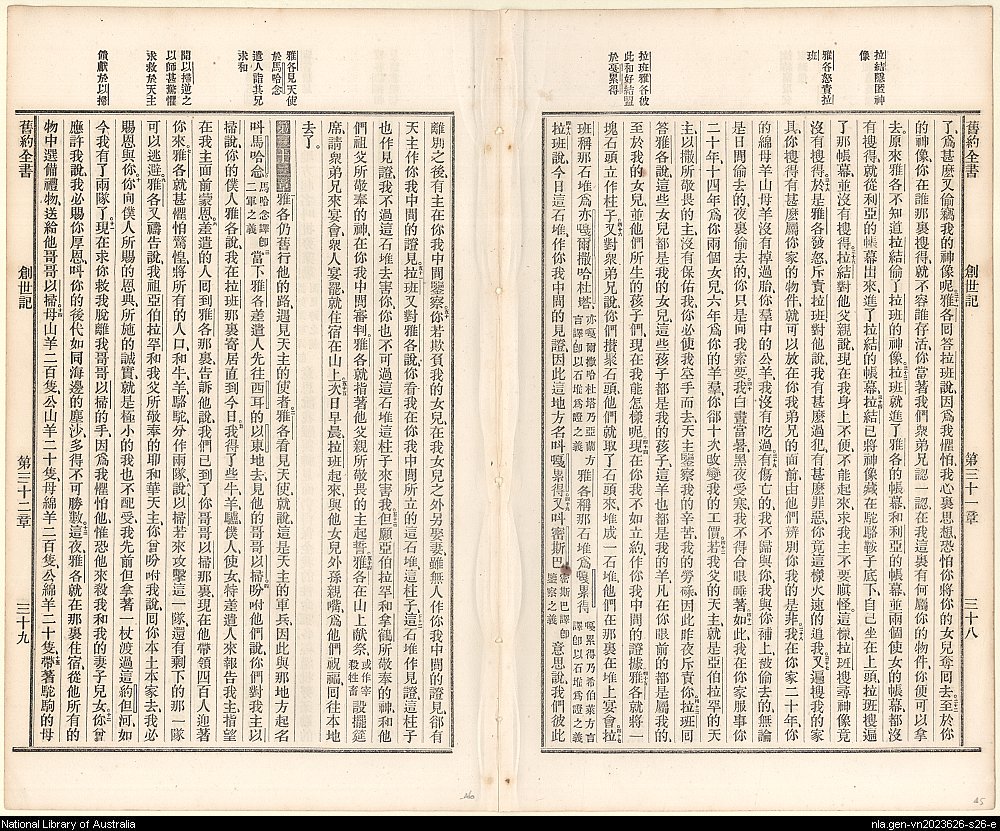 拉結隱匿神
像
雅各怒責拉
班
拉班雅各彼
此和好結盟
於嘎累得
舊約全書 創世記 第三十一章 三十八
了、爲甚麽又偷竊我的神像呢、雅各回答拉班說、因爲我懼怕、我心裏思想恐怕你將你的女兒奪回去、至於你
的神像、你在誰那裏搜得、就不容誰存活、你當著我們衆弟兄認一認、在我這裏有何屬你的物件、你便可以拿
去、原來雅各不知道拉結偷了拉班的神像、拉班就進了雅各的帳幕、和利亞的帳幕、並兩個使女的帳幕、都沒
有搜得、就從利亞的帳幕出來、進了拉結的帳幕、拉結已將神像藏在駝駱鞍子底下、自己坐在上頭、拉班搜遍
了那帳幕、並沒有搜得、拉結對他父親說、現在我身上不便、不能起來、求我主不要嗔怪、這樣拉班搜尋神像、竟
沒有搜得、於是雅各發怒斥責拉班、對他說、我有甚麽過犯、有甚麽罪惡、你竟這樣火速的追我、又遍搜我的家
具、你搜得有甚麽屬你家的物件、就可以放在你我弟兄的面前、由他們辨別你我的是非、我在你家二十年、你
的綿母羊山母羊沒有掉過胎、你羣中的公羊我沒有吃過、有傷亡的我不歸與你、我與你補上、被偷去的、無論
是日間偷去的、夜裏偷去的、你只是向我索要、我白晝當暑、黑夜受寒、我不得合眼睡著、如此我在你家服事你
二十年、十四年爲你兩個女兒、六年爲你的羊羣、你卻十次改變我的工價、若我父的天主、就是亞伯拉罕的天
主、以撒所敬畏的主、沒有保佑我、你必使我空手而去、天主鑒察我的辛苦、我的勞碌、因此昨夜斥責你、拉班回
答雅各說、這些女兒都是我的女兒、這些孩子都是我的孩子、這羊也都是我的羊、凡在你眼前的都是屬我的、
至於我的女兒、並他們所生的孩子們、現在我能怎樣呢、現在你我不如立約、作你我中間的證據、雅各就將一
塊石頭立作柱子、又對衆弟兄說、你們儧聚石頭、他們就取了石頭來堆成一石堆、他們在那裏在堆上宴會、拉
班稱那石堆爲亦嘎爾撒哈杜塔、亦嘎爾撒哈杜塔乃亞蘭方言譯卽以石堆爲證之義雅各稱那石堆爲嘎累得、嘎累得乃希伯萊方言譯卽以石堆爲證之義
拉班說、今日這石堆作你我中間的見證、因此這地方名叫嘎累得、又叫密斯巴、密斯巴譯卽鑒察之義意思說、我們彼此
雅各見天使
於馬哈念
遣人詣其兄
求和
聞以掃迎之
以師甚驚懼
求救於天主
備獻於以掃
離別之後、有主在你我中間鑒察、你若欺負我的女兒、在我女兒之外另娶妻、雖無人作你我中間的證見、卻有
天主作你我中間的證見、拉班又對雅各說、你看我在你我中間所立的這石堆、這柱子、這石堆作見證、這柱子
也作見證、我不過這石堆去害你、你也不可過這石堆這柱子來害我、但願亞伯拉罕和拿鶴所敬奉的神、和他
們祖父所敬奉的神、在你我中間審判、雅各就指著他父親所敬畏的主起誓、雅各在山上献祭、或作宰殺牲畜設擺筵
席、請衆弟兄來宴會、衆人宴罷、就住宿在山上、次日早晨拉班起來、與他女兒外孫親嘴、爲他們祝福、回往本地
去了。
第三十二章雅各仍舊行他的路、遇見天主的使者、雅各看見天使就說、這是天主的軍兵、因此與那地方起名
叫馬哈念、馬哈念譯卽二軍之義當下雅各差遣人先往西耳的以東地、去見他的哥哥以掃、吩咐他們說、你們對我主以
掃說、你的僕人雅各說、我在拉班那裏寄居直到今日、我得了些牛羊驢僕人使女、特差遣人來報告我主、指望
在我主面前蒙恩、差遣的人囘到雅各那裏、告訴他說、我們已到了你哥哥以掃那裏、現在他帶領四百人迎著
你來、雅各就甚懼怕驚惶、將所有的人口和牛羊駱駝分作兩隊、說、以掃若來攻擊這一隊、還有剩下的那一隊
可以逃避、雅各又禱告說、我祖亞伯拉罕和我父所敬奉的耶和華天主、你曾吩咐我說、囘你本土本家去、我必
賜恩與你、你向僕人所賜的恩典、所施的誠實、就是極小的我也不配受、我先前但拿著一杖渡過這約但河、如
今我有了兩隊了、現在求你救我脫離我哥哥以掃的手、因爲我懼怕他、惟恐他來殺我和我的妻子兒女、你曾
應許我說、我必賜你厚恩、叫你的後代如同海邊的塵沙、多得不可勝數、這夜雅各就在那裏住宿、從他所有的
物中、選備禮物、送給他哥哥以掃、母山羊二百隻、公山羊二十隻、母綿羊二百隻、公綿羊二十隻、帶著駝駒的母
舊約全書 創世記 第三十二章 三十九
National Library of Australia
nla.gen-vn2023626-s26-e